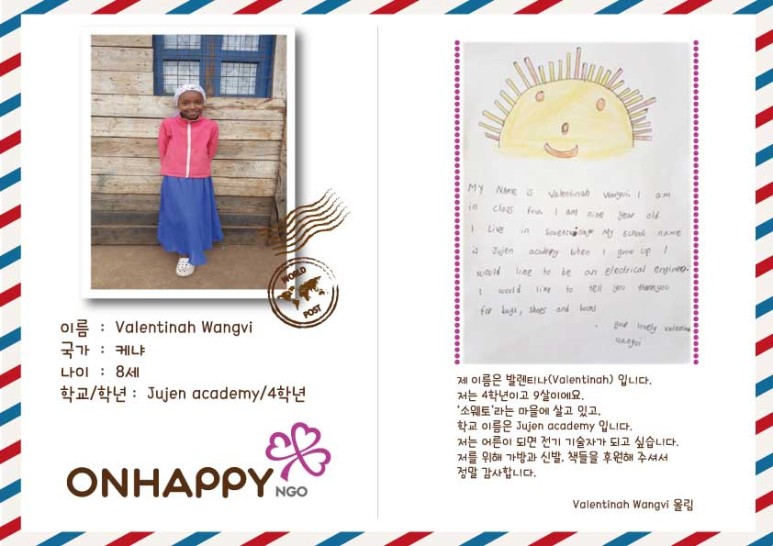 WORLD
POST
이름 : Valentinah Wangvi
국가 : 케냐
나이 : 8세
학교/학년 : Jujen academy/4학년
ONHAPPY
NGO
My Name is Valentinah Wangvi I am
in class four I am nine year old
I Live in My School name
is Jujen academy When I grow up I
would like to be an electrical engineer
I would like to tell you thankyou
for bags, shoes and books
your lovely valentina
Wangvi
제 이름은 발렌티나(Valentinah) 입니다.
저는 4학년이고 9살이에요.
'소웨토'라는 마을에 살고 있고,
학교 이름은 Jujen academy 입니다.
저는 어른이 되면 전기 기술자가 되고 싶습니다.
저를 위해 가방과 신발, 책들을 후원해 주셔서
정말 감사합니다.
Valentinah Wangvi 올림